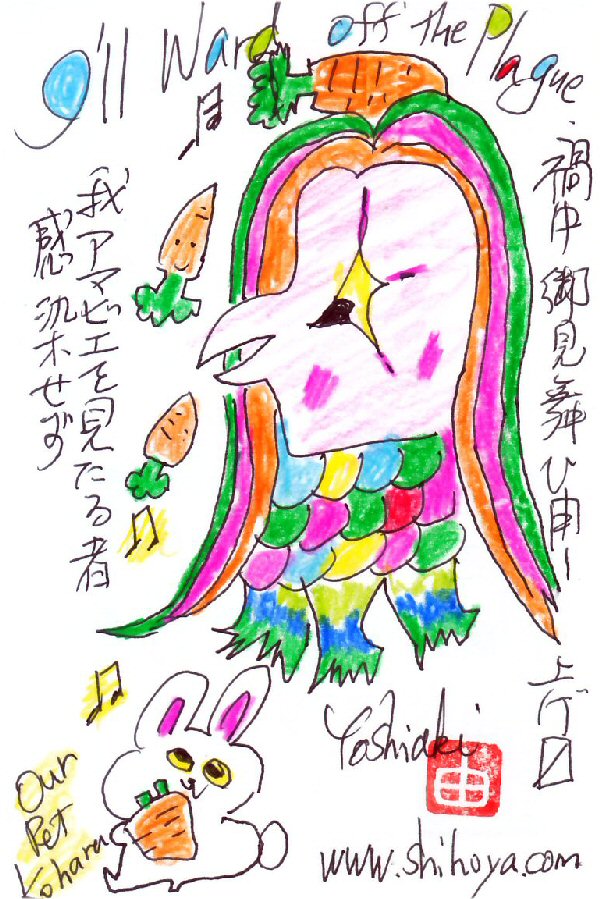 I'll Ward off the Plague.
禍中 御見舞ひ申し上ゲ〼
我アマビエを見たる者
感染せず
Yoshiaki
Our
Pet
Koharu
www.shihoya.com